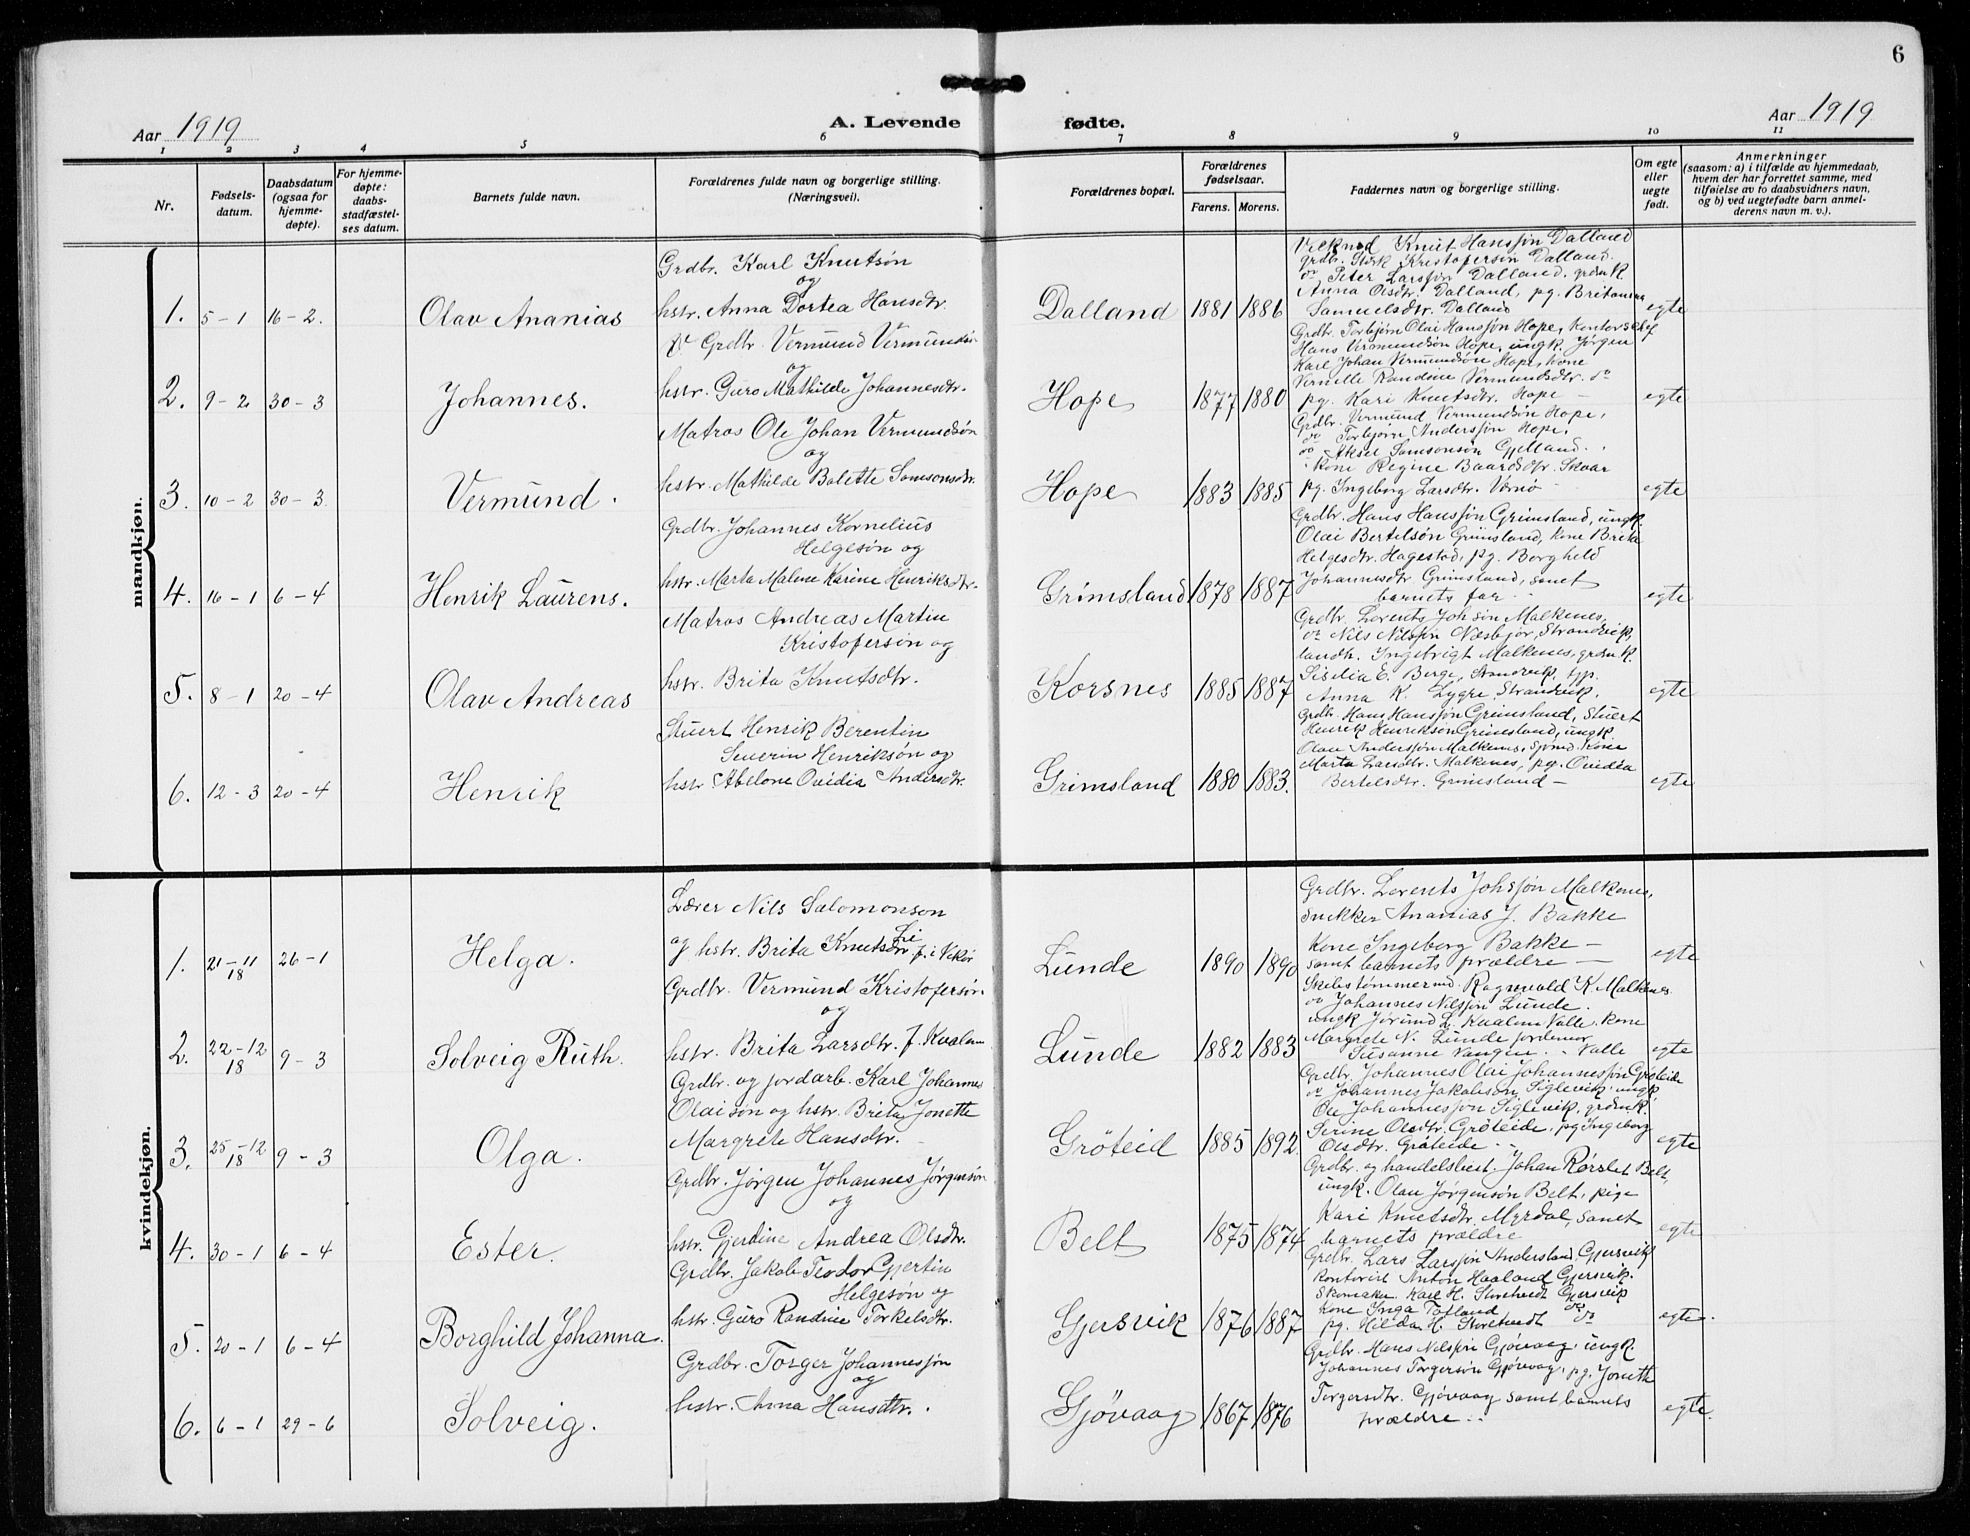 6
Aar 1919
A. Levende fødte.
Aar 1919
1 2 3 4 5 6 7 8 9 10 11
Nr.
Fødsels-
datum.
Daabsdatum
(ogsaa for
hjemme-
døpte).
For hjemme-
døpte:
daabs-
stadfæstel-
ses datum.
Barnets fulde navn.
Forældrenes fulde navn og borgerlige stilling.
(Næringsvei).
Forældrenes bopæl.
Forældrenes
fødselsaar.
Farens. Morens.
Faddernes navn og borgerlige stilling.
Om egte
eller
uegte
født.
Anmerkninger
(saasom: a) i tilfælde av hjemmedaab,
hvem der har forrettet samme, med
tilføielse av to daabsvidners navn,
og b) ved uegtefødte barn anmel-
derens navn m. v.).
mandkjøn.
1. 5-1 16-2. Olav Ananias
Grdbr. Karl Knutsøn
og
hstr. Anna Dortea Hansdtr.
Dalland 1881 1886
Knut Hanssøn Dalland
grdbr. Kristofersøn Dalland.
do Peter Larssøn Dalland. grdmk
Anna Olsdtr. Dalland, pg. Britanna
Samuelsdtr. Dalland
egte
2. 9-2 30-3 Johannes.
Grdbr. Vermund Vermundsøn
og
hstr. Guro Mathilde Johannesdtr.
Hope 1877 1880
Grdbr. Torbjørn Olai Hanssøn Hope, Kontorschef
Hans Vermundsøn Hope, ungk. Jørgen
Karl Johan Vermundsøn Hope, kone
Randine Vermundsdtr. do
pg. Kari Knutsdtr. Hope –
egte
3. 10-2 30-3. Vermund.
Matros Ole Johan Vermundsøn
og
hstr. Mathilde Bolette Samsonsdtr.
Hope 1883 1885
Grdbr. Vermund Vermundsøn Hope,
do Torbjørn Anderssøn Hope,
do Aksel Samsonsøn Gjelland..
kone Regine Baardsdtr. Skaar
pg. Ingeborg Larsdtr.
egte
4. 16-1 6-4 Henrik Laurens.
Grdbr. Johannes Kornelius
Helgesøn og
hstr. Marta Malene Karine Henriksdtr.
Grimsland 1878 1887
Grdbr. Hans Hanssøn Grimsland, ungk.
Olai Bertelsøn Grimsland, kone Brita
Helgesdtr. Hagestad, pg. Borghild
Johannesdtr. Grimsland, samt
barnets far.
egte
5. 8-1 20-4 Olav Andreas
Matros Andreas Martin
Kristofersøn og
hstr. Brita Knutsdtr.
Korsnes 1885 1887
Grdbr. Lorents Johsøn Malkenes,
do Nils Nilssøn Næsbjør, Strandvik,
landh. Ingebrigt Malkenes, grdmk.
Sisilia E. Berge, Strandvik,
Anna K. Lygre, Strandvik.
egte
6. 12-3 20-4 Henrik
Stuert Henrik Berentin
Severin Henriksøn og
hstr Abelone Ovidia Andersdtr.
Grimsland 1880 1883.
Grdbr. Hans Hanssøn Grimsland, Stuert
Henrik Henriksøn Grimsland, ungk.
Olav Anderssøn Malkenes, kone
Marta Larsdtr. Malkenes, pg. Ovidia
Bertelsdtr. Grimsland –
egte
kvindekjøn.
1. 21-11 18 26-1 Helga.
Lærer Nils Salomonson
Li
og hstr. Brita Knutsdtr f. i
Lunde 1890 1890
Grdbr. Lorents Johssøn Malkenes,
snekker Ananias J. Bakke
Kone Ingeborg Bakke –
samt barnets forældre –
egte
2. 22-12 18 9-3 Solveig Ruth.
Grdbr. Vermund Kristofersøn
og
hstr. Brita Larsdtr. f. Kvalem
Lunde 1882 1883
Skibstømmermd. Ragnvald K. Malkenes
do Johannes Nilssøn Lunde.
ungk Jørund L. Kvalem Valle. kone
Margrete N. Lunde jordemor
Susanne Vangen.. Valle
egte
3. 25-12 18 9-3 Olga.
Grdbr. og jordarb. Karl Johannes
Olaisøn og hstr. Brita Jonette
Margrete Hansdtr.
Grøteid 1885 1892.
Grdbr. Johannes Olai Johannessøn Grøteide
do Johannes Jakobson Siglevik, ungk
Ole Johannessøn Siglevik, grdmk.
Serine Olsdtr. Grøteide, pg Ingeborg
Olsdtr. Grøteide –
egte
4. 30-1 6-4 Ester.
Grdbr. Jørgen Johannes Jørgensøn
og
hstr. Gjerdine Andrea Olsdtr.
Belt 1875 1874
Grdbr. og handelsbest. Johan Rørslet Belt,
ungk. Olav Jørgensøn Belt, pige
Kari Knutsdtr. Myrdal, samt
barnets forældre
egte
5. 20-1 6-4 Borghild Johanna.
Grdbr. Jakob Teodor Gjertin
Helgesøn og
hstr. Guro Randine Torkelsdtr.
Gjersvik 1876 1887
Grdbr. Lars Larssøn Andersland, Gjersvik
Kontorist Anton Haaland Gjersvik.
Skomaker. Karl H. Gjersvik
Kone Inga Tofland do
pg. Hilda H. do
egte.
6. 6-1 29-6 Solveig.
Grdbr. Torger Johannessøn
og
hstr. Anna Hansdtr.
Gjøvaag 1867 1876
Grdbr. Hans Nilssøn Gjøvaag, ungk.
Johannes Torgersøn Gjøvaag, pg. Joneth
Torgersdtr. Gjøvaag samt barnets
forældre..
egte.